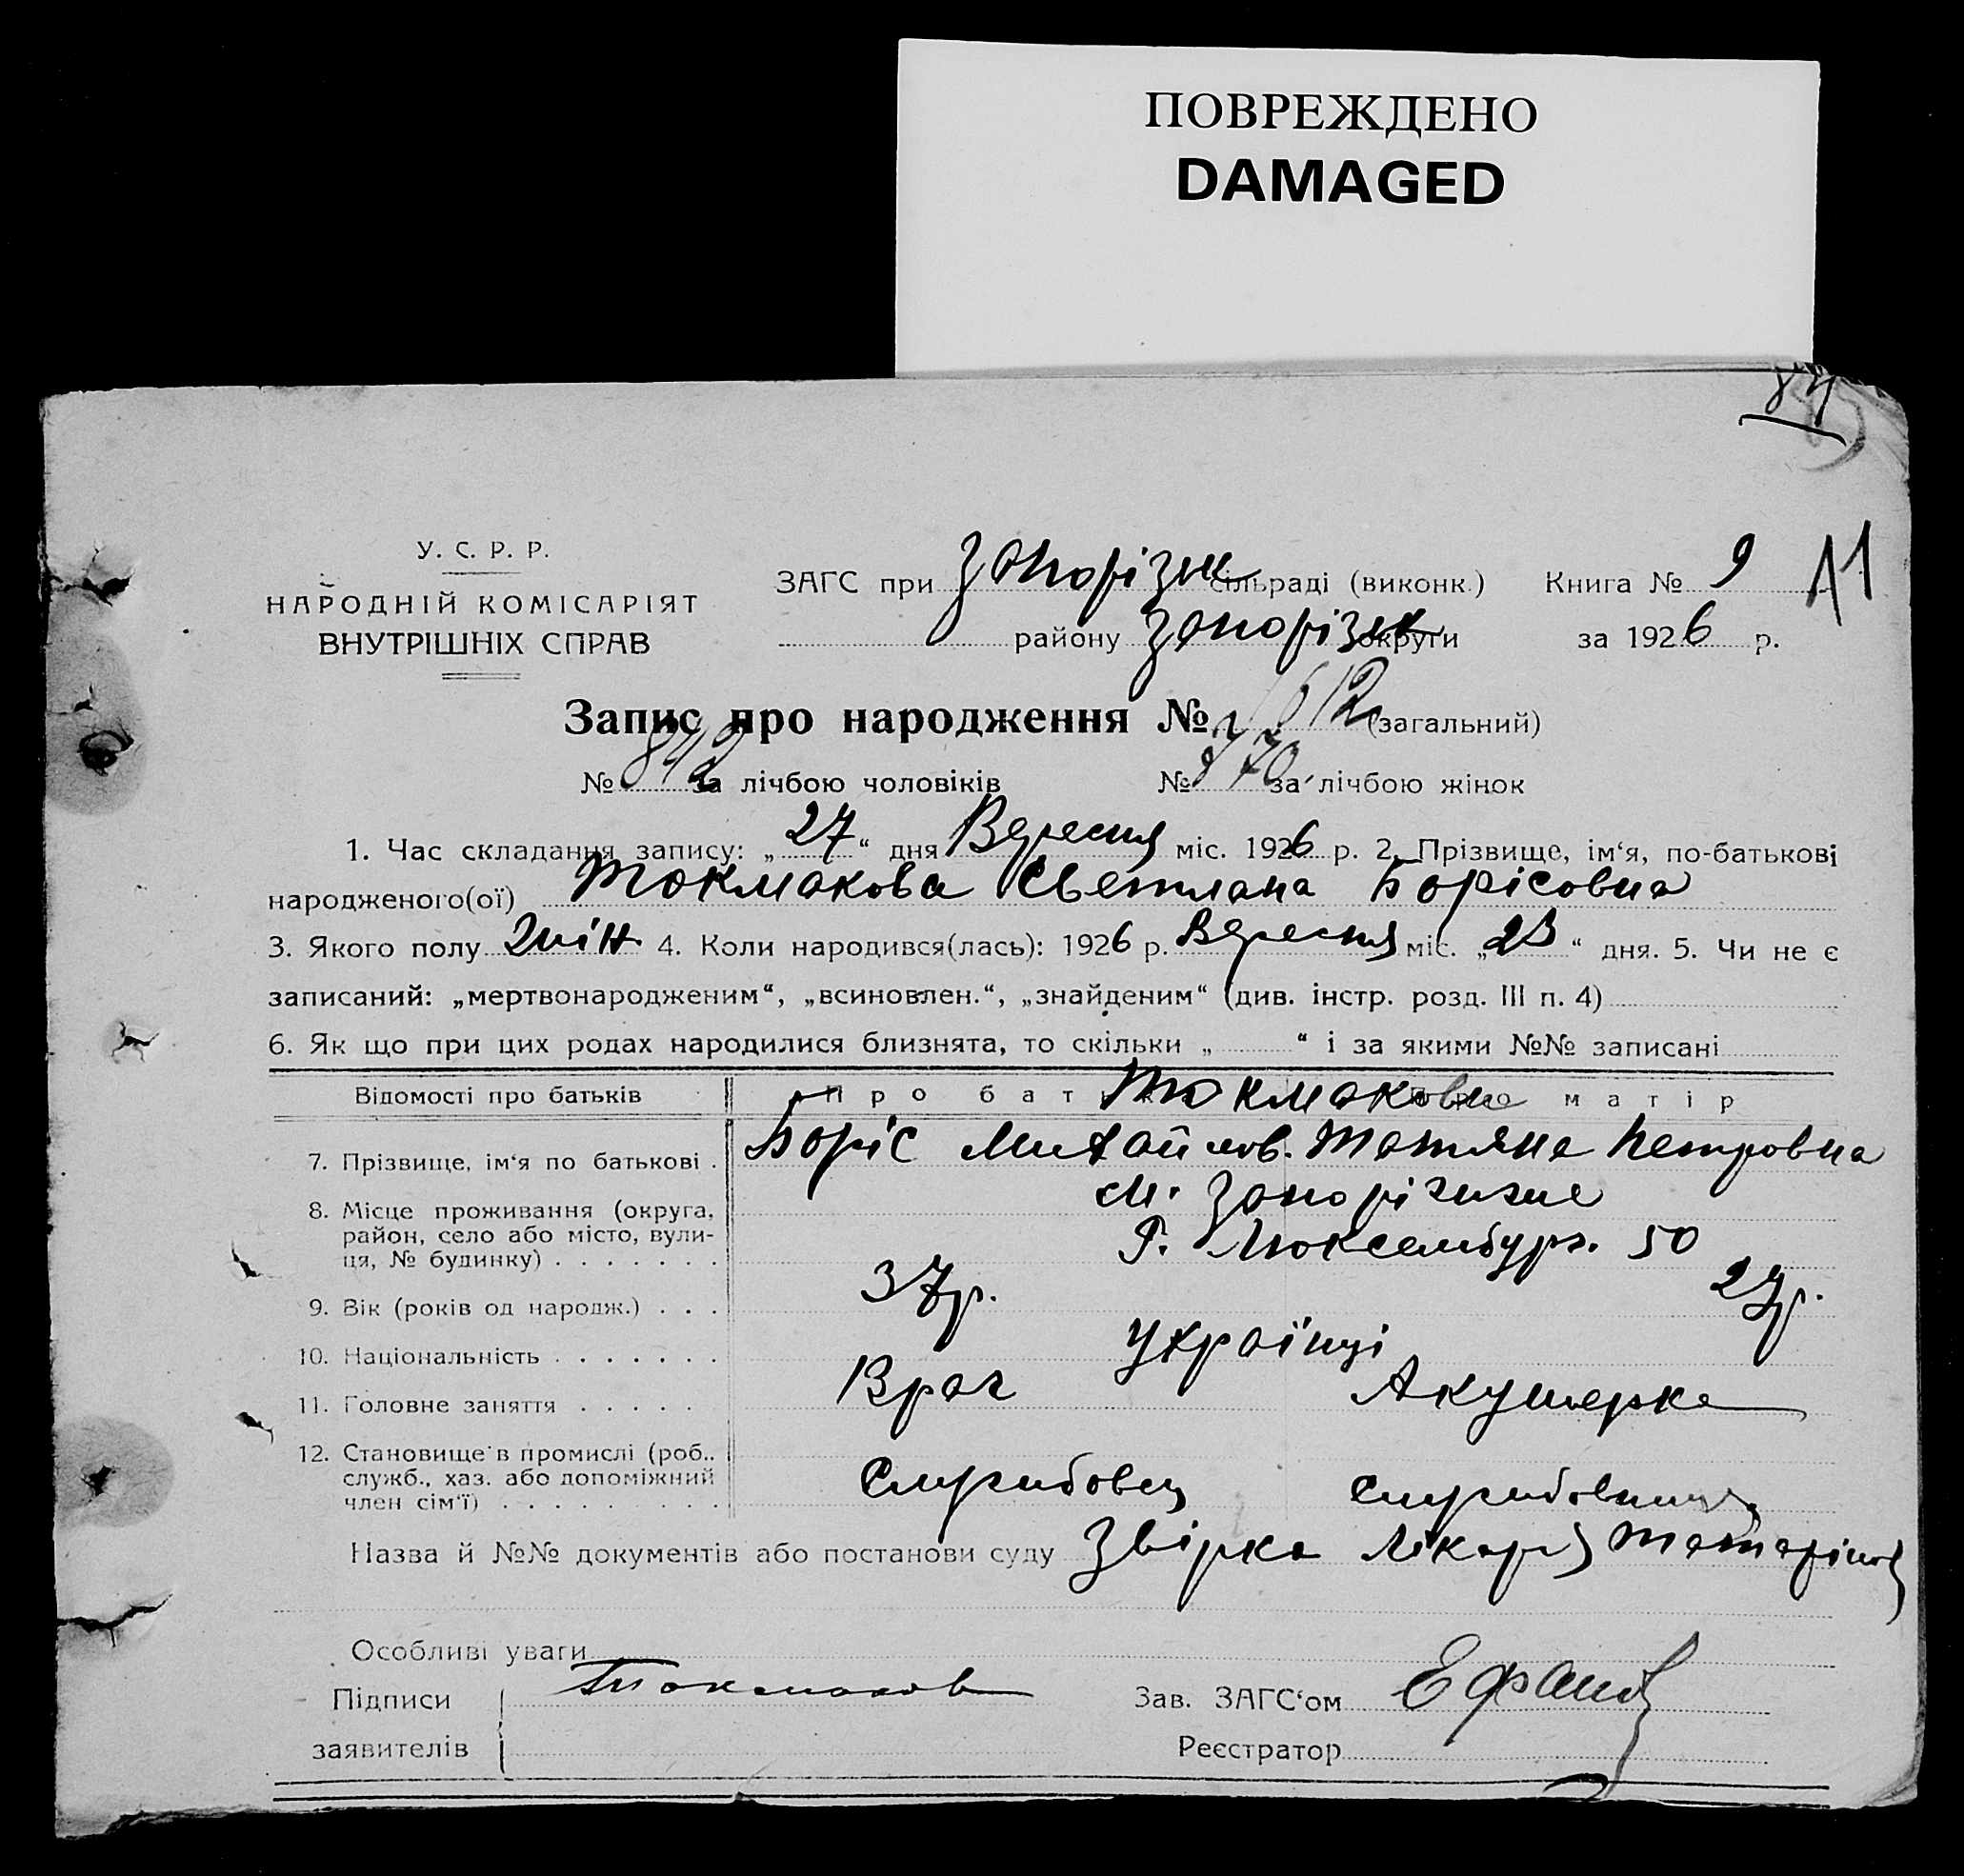 ПОВРЕЖДЕНО
DAMAGED
84
У. С. Р. Р.
НАРОДНІЙ КОМІСАРІЯТ
ВНУТРІШНІХ СПРАВ
ЗАГС при Запорізьк сільраді (виконк.) Книга № 9
району Запорізьк округи за 1926 р.
Запис про народження № 1612 (загальний)
№ 842 за лічбою чоловіків № 770 за лічбою жінок
1. Час складання запису: „27“ дня Вересня міс. 1926 р. 2. Прізвище, ім‘я, по-батькові
народженого(ої) Токмакова Светлана Борісовна
3. Якого полу Жін. 4. Коли народився(лась): 1926 р. Вересня міс. „23“ дня. 5. Чи не є
записаний: „мертвонародженим“, „всиновлен.“, „знайденим“ (див. інстр. розд. III п. 4)
6. Як що при цих родах народилися близнята, то скільки „ “ і за якими №№ записані
Відомості про батьків Про батька Про матір
Токмакови
7. Прізвище, ім‘я по батькові . Боріс Михайлов. Татяна Петровна
8. Місце проживання (округа, район, село або місто, вули-ця, № будинку) . . . . . . . м. Запоріжжє
Р. Люксембург. 50
9. Вік (років од народж.) . . . 37р. 27р.
10. Національність . . . . . . . Українці
11. Головне заняття . . . . . Врач Акушерка
12. Становище в промислі (роб., служб., хаз. або допоміжний член сім‘ї) . . . . . . . . . Службовец службовниця
Назва й №№ документів або постанови суду Звірка Лікаря
Особливі уваги
Підписи Токмаков Зав. ЗАГС‘ом Ефанов
заявителів Реєстратор